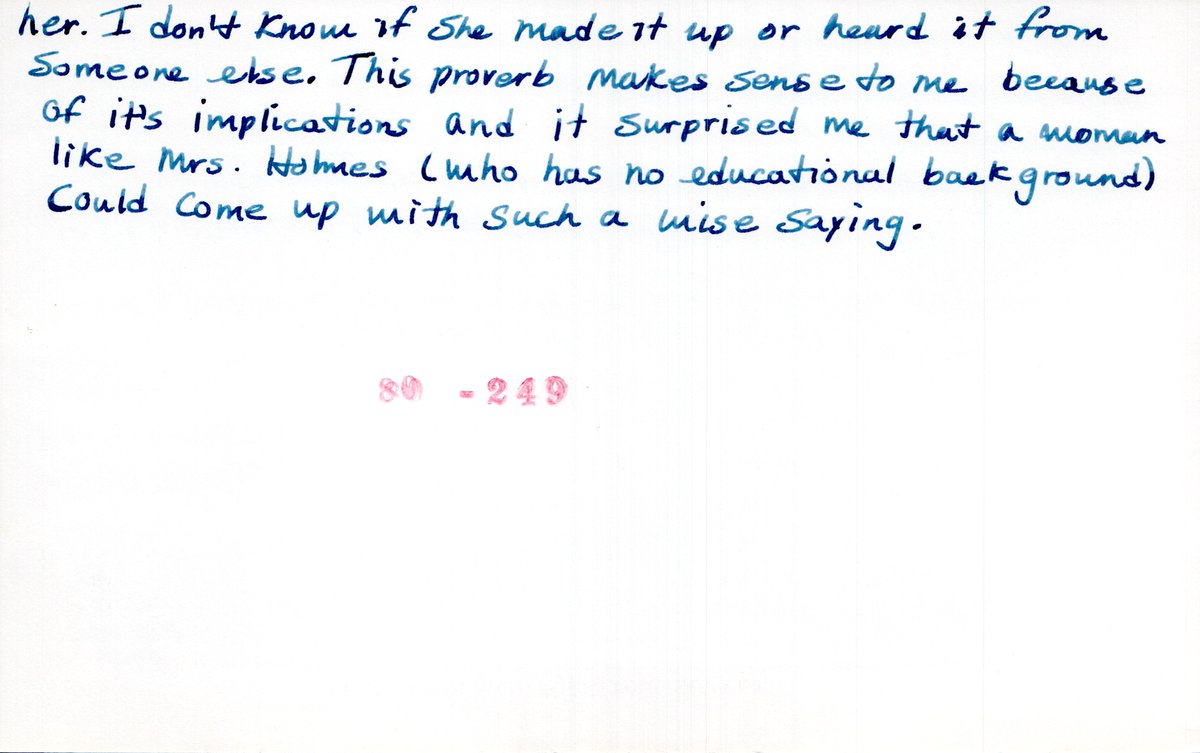 her. I don't know if she made it up or heard it from
someone else. This proverb makes sense to me because
of it's implications and it surprised me that a woman
like Mrs. Holmes (who has no educational background)
Could come up with such a wise saying.
80 - 249